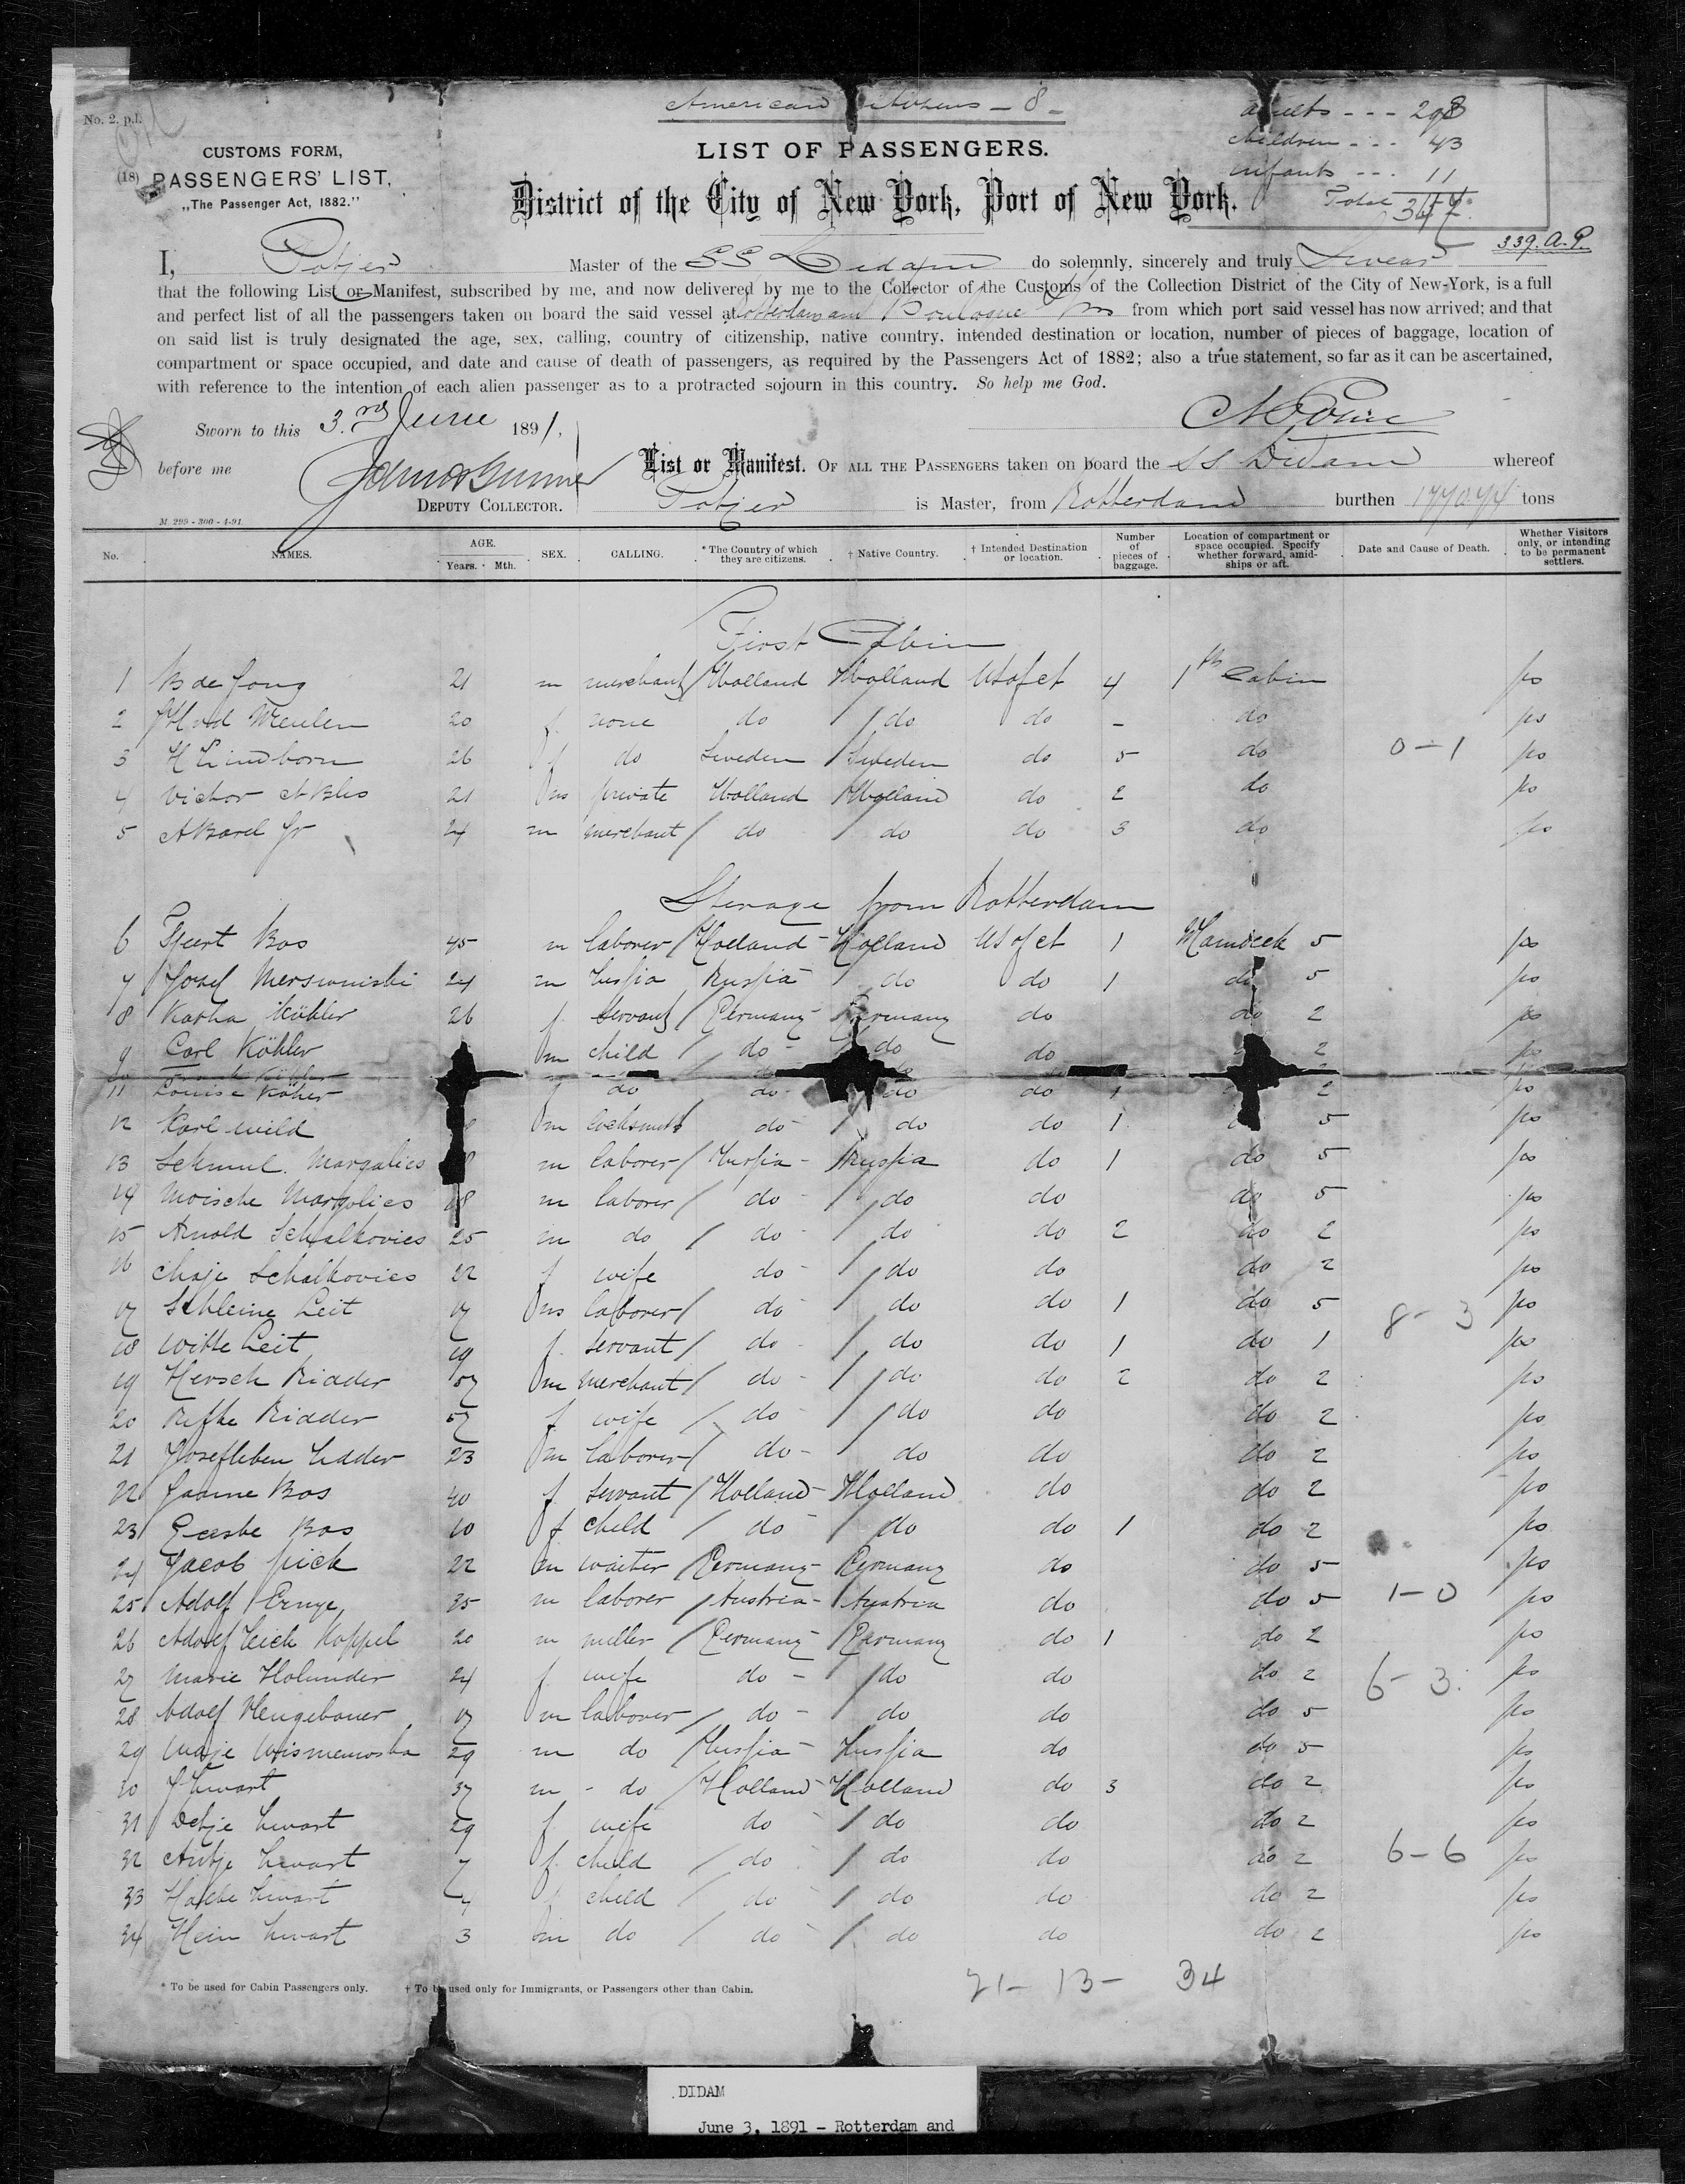 American Citizens - 8 -
adults - - - 298
children - - - 43
infants - - - 11
Total
339. A. P.
No. 2. p.l.
CUSTOMS FORM,
(18) PASSENGERS' LIST,
„The Passenger Act, 1882."
LIST OF PASSENGERS.
District of the City of New York, Port of New York.
I, Potjer Master of the SS Didam do solemnly, sincerely and truly Swear
that the following List or Manifest, subscribed by me, and now delivered by me to the Collector of the Customs of the Collection District of the City of New-York, is a full
and perfect list of all the passengers taken on board the said vessel at Rotterdam and Boulogne from which port said vessel has now arrived; and that
on said list is truly designated the age, sex, calling, country of citizenship, native country, intended destination or location, number of pieces of baggage, location of
compartment or space occupied, and date and cause of death of passengers, as required by the Passengers Act of 1882; also a true statement, so far as it can be ascertained,
with reference to the intention of each alien passenger as to a protracted sojourn in this country. So help me God.
Sworn to this 3.rd June 1891,
before me
DEPUTY COLLECTOR.
List or Manifest. OF ALL THE PASSENGERS taken on board the SS Didam whereof
Potjer is Master, from Rotterdam burthen tons
M. 299 - 300 - 4-91.
No. NAMES. AGE. Years. Mth. SEX. CALLING. * The Country of which they are citizens. † Native Country. † Intended Destination or location. Number of pieces of baggage. Location of compartment or space occupied. Specify whether forward, amidships or aft. Date and Cause of Death. Whether Visitors only, or intending to be permanent settlers.
First Cabin
1 B de Jong 21 m merchant Holland Holland US of A 4 1st Cabin ps
2 20 f none do do do - do ps
3 H Lindborn 26 f do Sweden Sweden do 5 do 0-1 ps
4 Victor 21 m private Holland Holland do 2 do ps
5 A Karel Jr 24 m merchant do do do 3 do ps
Sterage from Rotterdam
6 Bos 45 m laborer Holland Holland US of A 1 Maindeck 5 ps
7 Josef 24 m Russia do do 1 do 5 ps
8 Katha Köhler 26 f servant Germany Germany do do 2 ps
9 Carl Köhler m child do do do 2 ps
10 Köhler
11 Louise Köhler f do do do do 1 2 ps
12 Karl Wild m locksmith do do do 1 5 ps
13 Schmul Margalies m laborer Russia Russia do 1 do 5 ps
14 Moische Margolies 18 m laborer do do do do 5 ps
15 Arnold Schalkovics 25 m do do do do 2 do 2 ps
16 Chaje Schalkovics 22 f wife do do do do 2 ps
17 Leit 17 m laborer do do do 1 do 5 8-3 ps
18 Witte Leit 19 f servant do do do 1 do 1 ps
19 Hersch Ridder 57 m merchant do do do 2 do 2 ps
20 Rifke Ridder 57 f wife do do do do 2 ps
21 23 m laborer do do do do 2 ps
22 Bos 40 f servant Holland Holland do do 2 ps
23 Bos 10 f child do do do 1 do 2 ps
24 Jacob Pick 22 m waiter Germany Germany do do 5 ps
25 Adolf 35 m laborer Austria Austria do do 5 1-0 ps
26 Adolf Koppel 20 m miller Germany Germany do 1 do 2 ps
27 Marie Holunder 24 f wife do do do do 2 6-3 ps
28 Adolf 17 m laborer do do do do 5 ps
29 29 m do Russia Russia do do 5 ps
30 J Zwart 37 m - do Holland Holland do 3 do 2 ps
31 Detje Zwart 29 f wife do do do do 2 ps
32 Antje Zwart 7 f child do do do do 2 6-6 ps
33 Zwart 4 f child do do do do 2 ps
34 Hein Zwart 3 m do do do do do 2 ps
21- 13- 34
* To be used for Cabin Passengers only. † To be used only for Immigrants, or Passengers other than Cabin.
DIDAM
June 3, 1891 - Rotterdam and